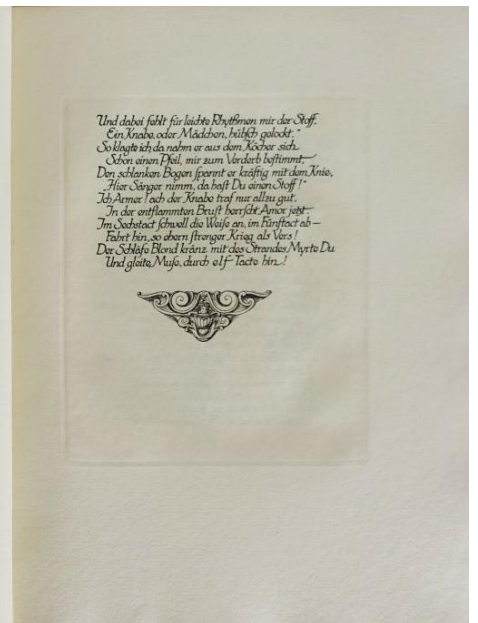 Und dabei fehlt für leichte Rhythmen mir der Stoff,
Ein Knabe, oder Mädchen, hübsch gelockt."
So klagte ich, da nahm er aus dem Köcher sich
Schon einen Pfeil, mir zum Verderb bestimmt,
Den schlanken Bogen spannt er kräftig mit dem Knie,
„Hier Sänger nimm, da hast Du einen Stoff!"
Ich Armer! ach der Knabe traf nur allzu gut,
In der entflammten Brust herrscht Amor jetzt.
Im Sechstact schwell die Weise an, im Fünftact ab —
Fahrt hin, so ehern strenger Krieg als Vers!
Der Schläfe Blond kränz mit des Strandes Myrte Du
Und gleite, Muse, durch elf Tacte hin!